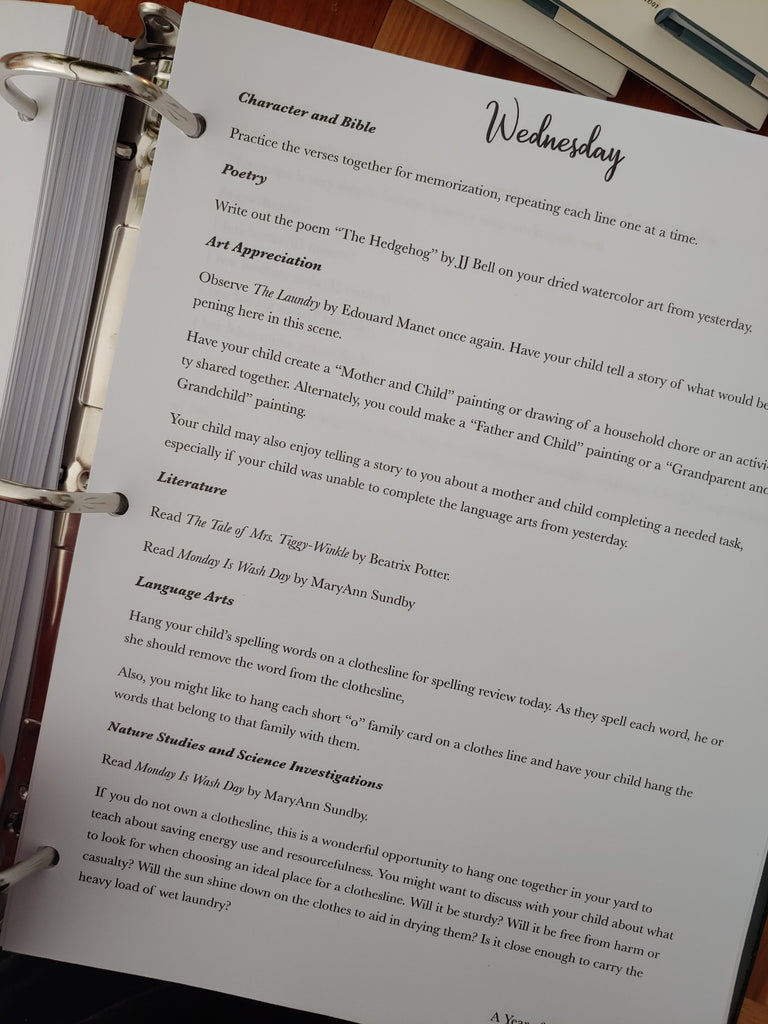 Wednesday
Character and Bible
Practice the verses together for memorization, repeating each line one at a time.
Poetry
Write out the poem “The Hedgehog” by JJ Bell on your dried watercolor art from yesterday.
Art Appreciation
Observe The Laundry by Edouard Manet once again. Have your child tell a story of what would be
pening here in this scene.
Have your child create a “Mother and Child” painting or drawing of a household chore or an activi-
ty shared together. Alternately, you could make a “Father and Child” painting or a “Grandparent and
Grandchild” painting.
Your child may also enjoy telling a story to you about a mother and child completing a needed task,
especially if your child was unable to complete the language arts from yesterday.
Literature
Read The Tale of Mrs. Tiggy-Winkle by Beatrix Potter.
Read Monday Is Wash Day by MaryAnn Sundby
Language Arts
Hang your child’s spelling words on a clothesline for spelling review today. As they spell each word, he or
she should remove the word from the clothesline,
Also, you might like to hang each short “o” family card on a clothes line and have your child hang the
words that belong to that family with them.
Nature Studies and Science Investigations
Read Monday Is Wash Day by MaryAnn Sundby.
If you do not own a clothesline, this is a wonderful opportunity to hang one together in your yard to
teach about saving energy use and resourcefulness. You might want to discuss with your child about what
to look for when choosing an ideal place for a clothesline. Will it be sturdy? Will it be free from harm or
casualty? Will the sun shine down on the clothes to aid in drying them? Is it close enough to carry the
heavy load of wet laundry?
A Year